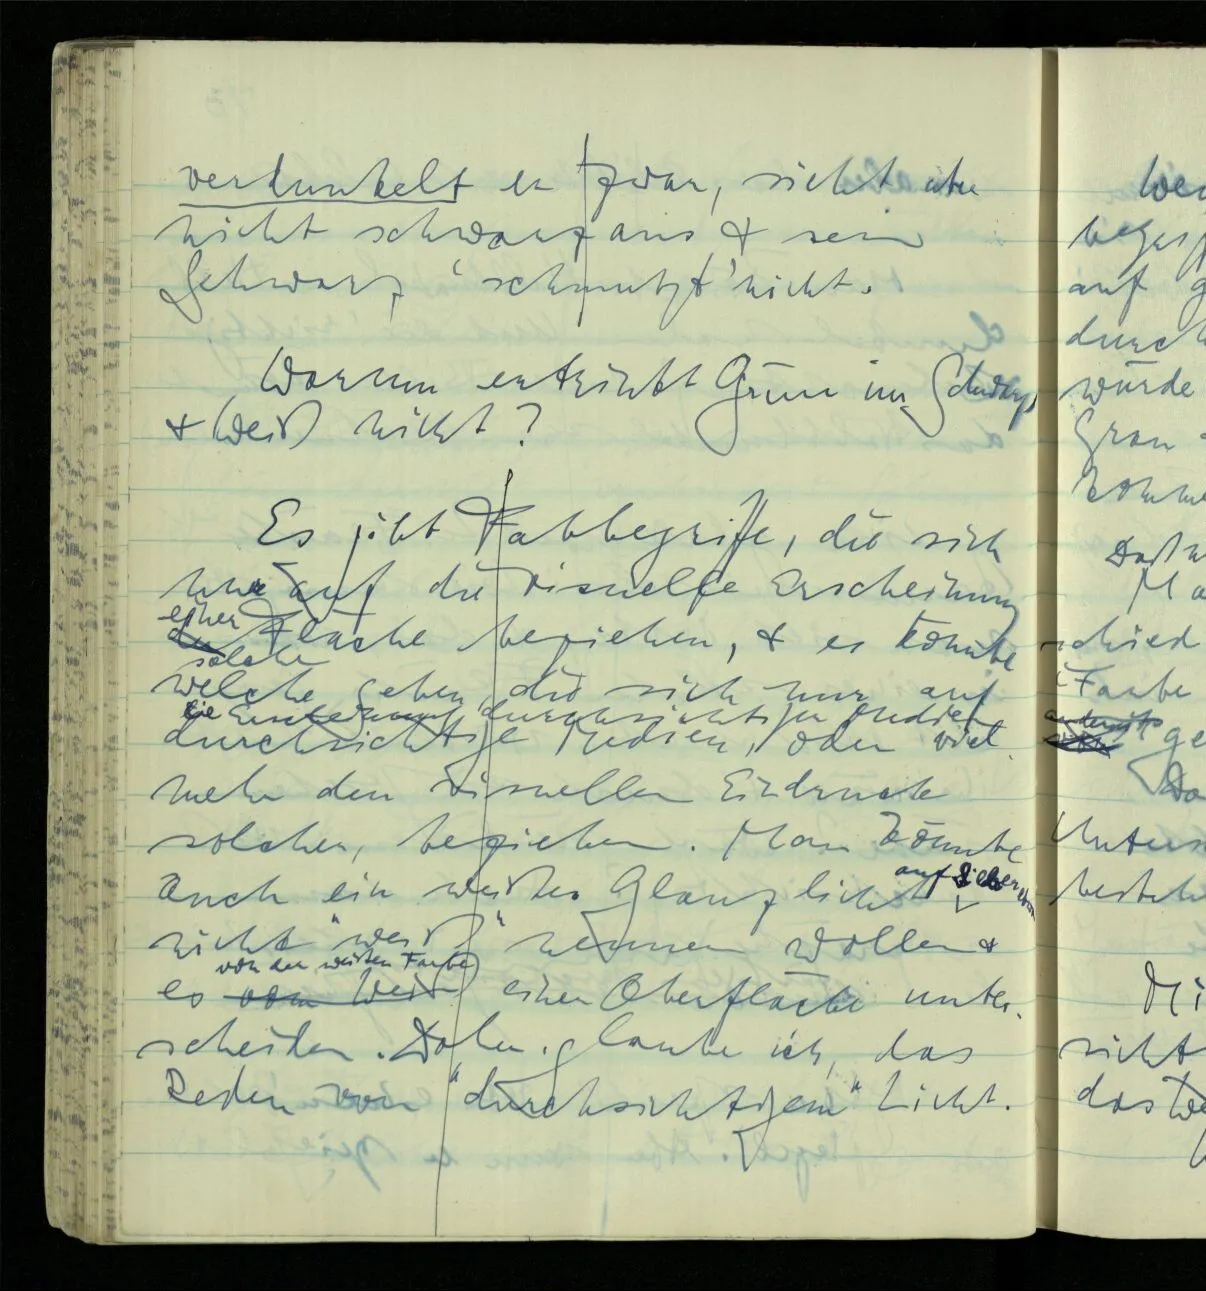 verdunkelt er zwar, sieht aber
nicht schwarz aus & sein
Schwarz 'schmutzt' nicht.
Warum ertrinkt Grün im Schwarz,
& Weiß nicht?
Es gibt Farbbegriffe, die sich
nur auf die visuelle Erscheinung
einer
der Fläche beziehen, & es könnte
solche
welche geben, die sich nur auf
die Erscheinung durchsichtiger Medien
durchsichtige Medien, oder viel-
mehr den visuellen Eindruck
solcher, beziehen. Man könnte
auf Silber etwa
auch ein weißes Glanzlicht
nicht "weiß" nennen wollen &
von der weißen Farbe
es vom Weiß einer Oberfläche unter-
scheiden. Daher, glaube ich, das
Reden vom "durchsichtigem" Licht.
wen
auf g
durch
würde
Grau
komme
Daß
Ma
schied
Farbe
anderseits
von ge
Da
Unters
besteh
Mi
sicht
das We